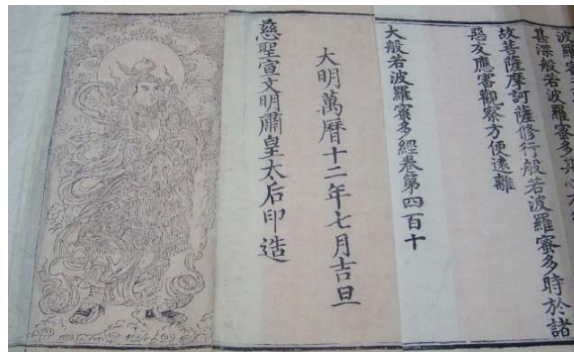 甚深般若波羅蜜多其心不
故菩薩摩訶薩修行般若波羅蜜多時於諸
惡友應審觀察方便遠離
大般若波羅蜜多經卷第四百十
大明萬曆十二年七月吉旦
慈聖宣文明肅皇太后印造